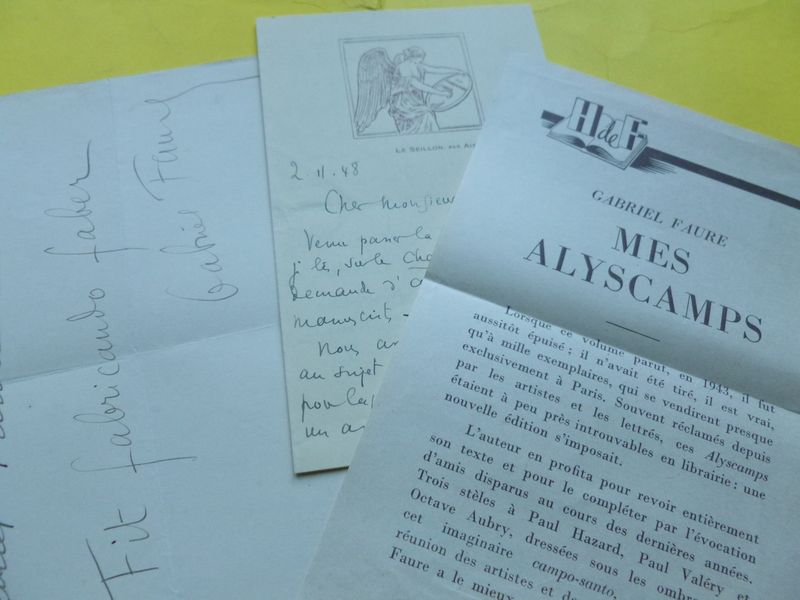 Fit fabricando faber
Gabriel Faure
LE SEILLON, PAR
2. 11. 48
Cher Monsieur
Venu passer la
j'ai lu, sur le
Demande d'
manuscrits -
Nous
au sujet
pour les
un
H de F
GABRIEL FAURE
MES
ALYSCAMPS
Lorsque ce volume parut, en 1943, il fut
aussitôt épuisé ; il n'avait été tiré, il est vrai,
qu'à mille exemplaires, qui se vendirent presque
exclusivement à Paris. Souvent réclamés depuis
par les artistes et les lettrés, ces Alyscamps
étaient à peu près introuvables en librairie : une
nouvelle édition s'imposait.
L'auteur en profita pour revoir entièrement
son texte et pour le compléter par l'évocation
d'amis disparus au cours des dernières années.
Trois stèles à Paul Hazard, Paul Valéry et
Octave Aubry, dressées sous les
cet imaginaire campo-santo,
réunion des artistes et
Faure a le mieux